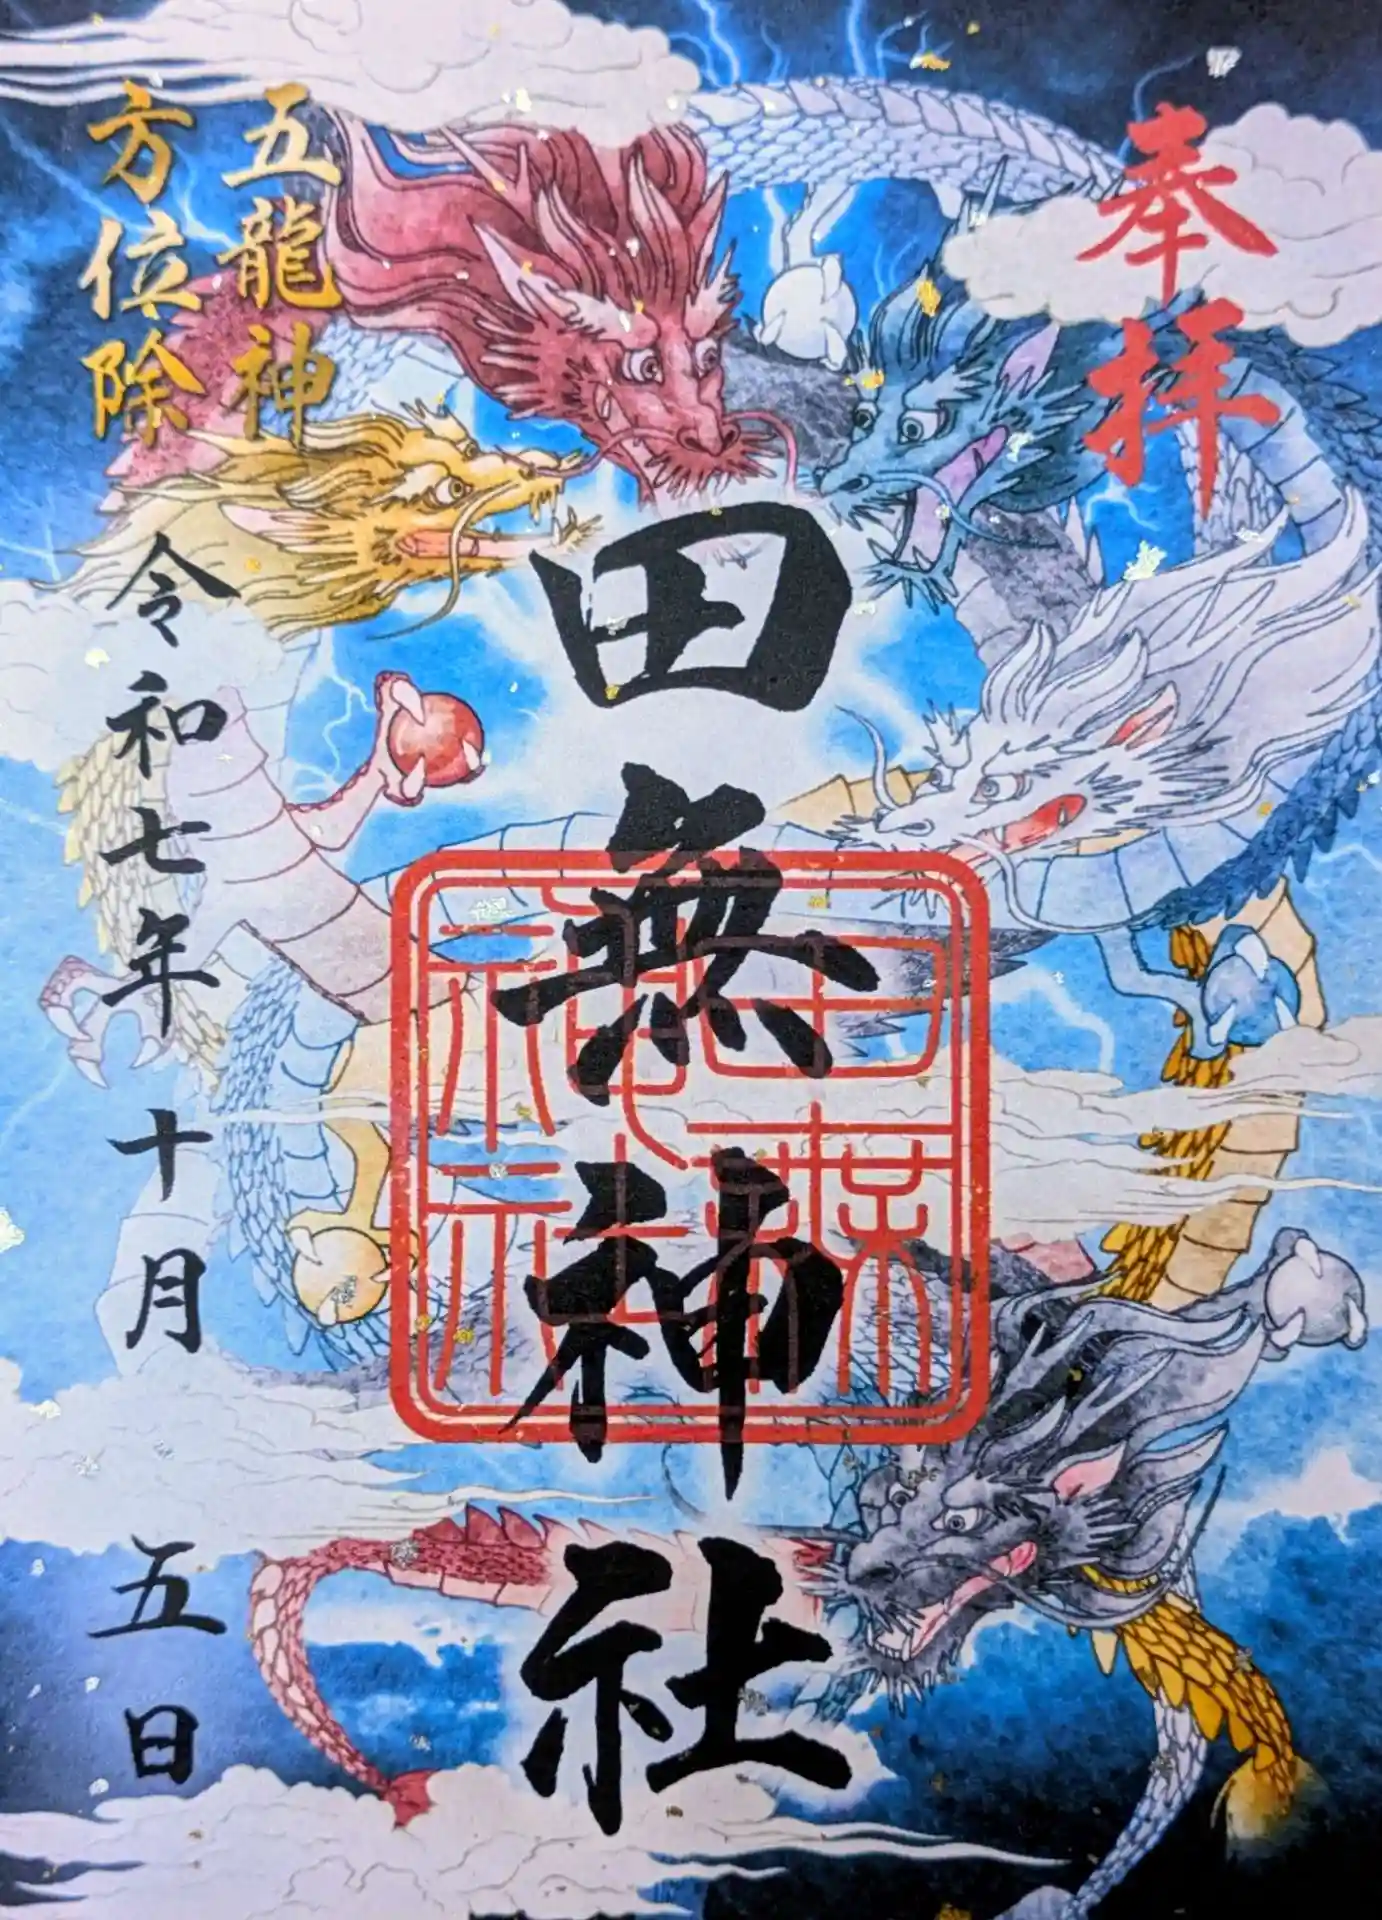 奉拝
田無神社
田無神社
五龍神
方位除
令和七年十月五日